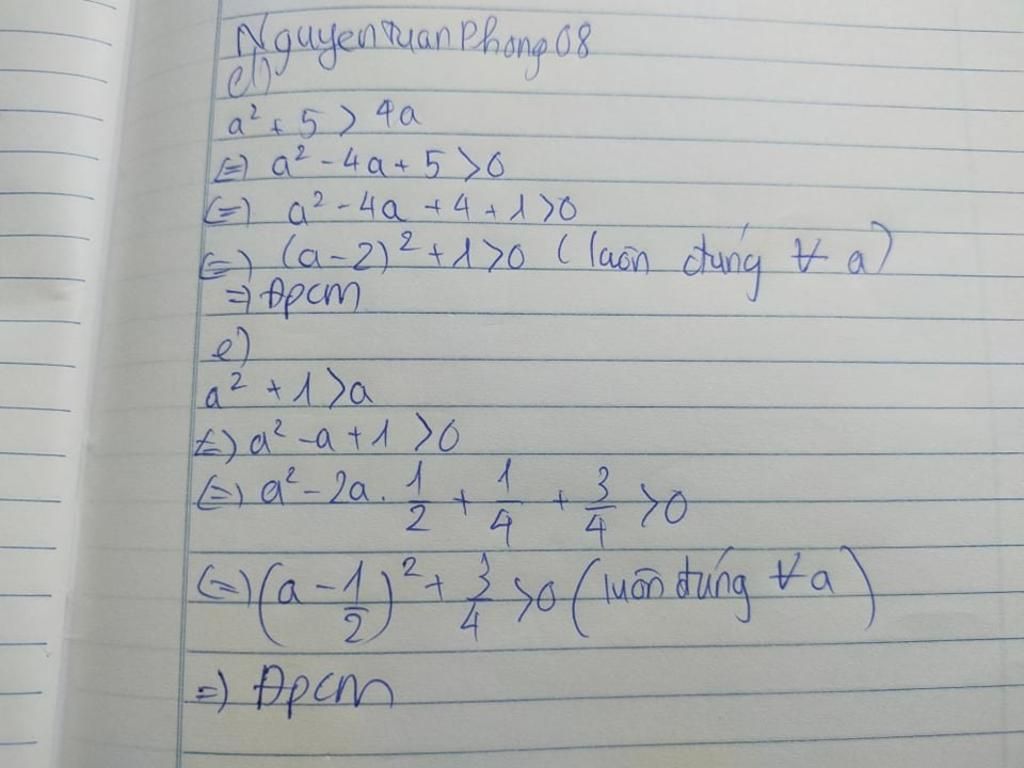 NguyenTuanPhong08
d)
a² + 5 > 4a
(=) a² - 4a + 5 > 0
(=) a² - 4a + 4 + 1 > 0
(=) (a - 2)² + 1 > 0 (luôn đúng ∀ a)
=) Đpcm
e)
a² + 1 > a
(=) a² - a + 1 > 0
(=) a² - 2a. 1/2 + 1/4 + 3/4 > 0
(=) (a - 1/2)² + 3/4 > 0 (luôn đúng ∀ a)
=) Đpcm